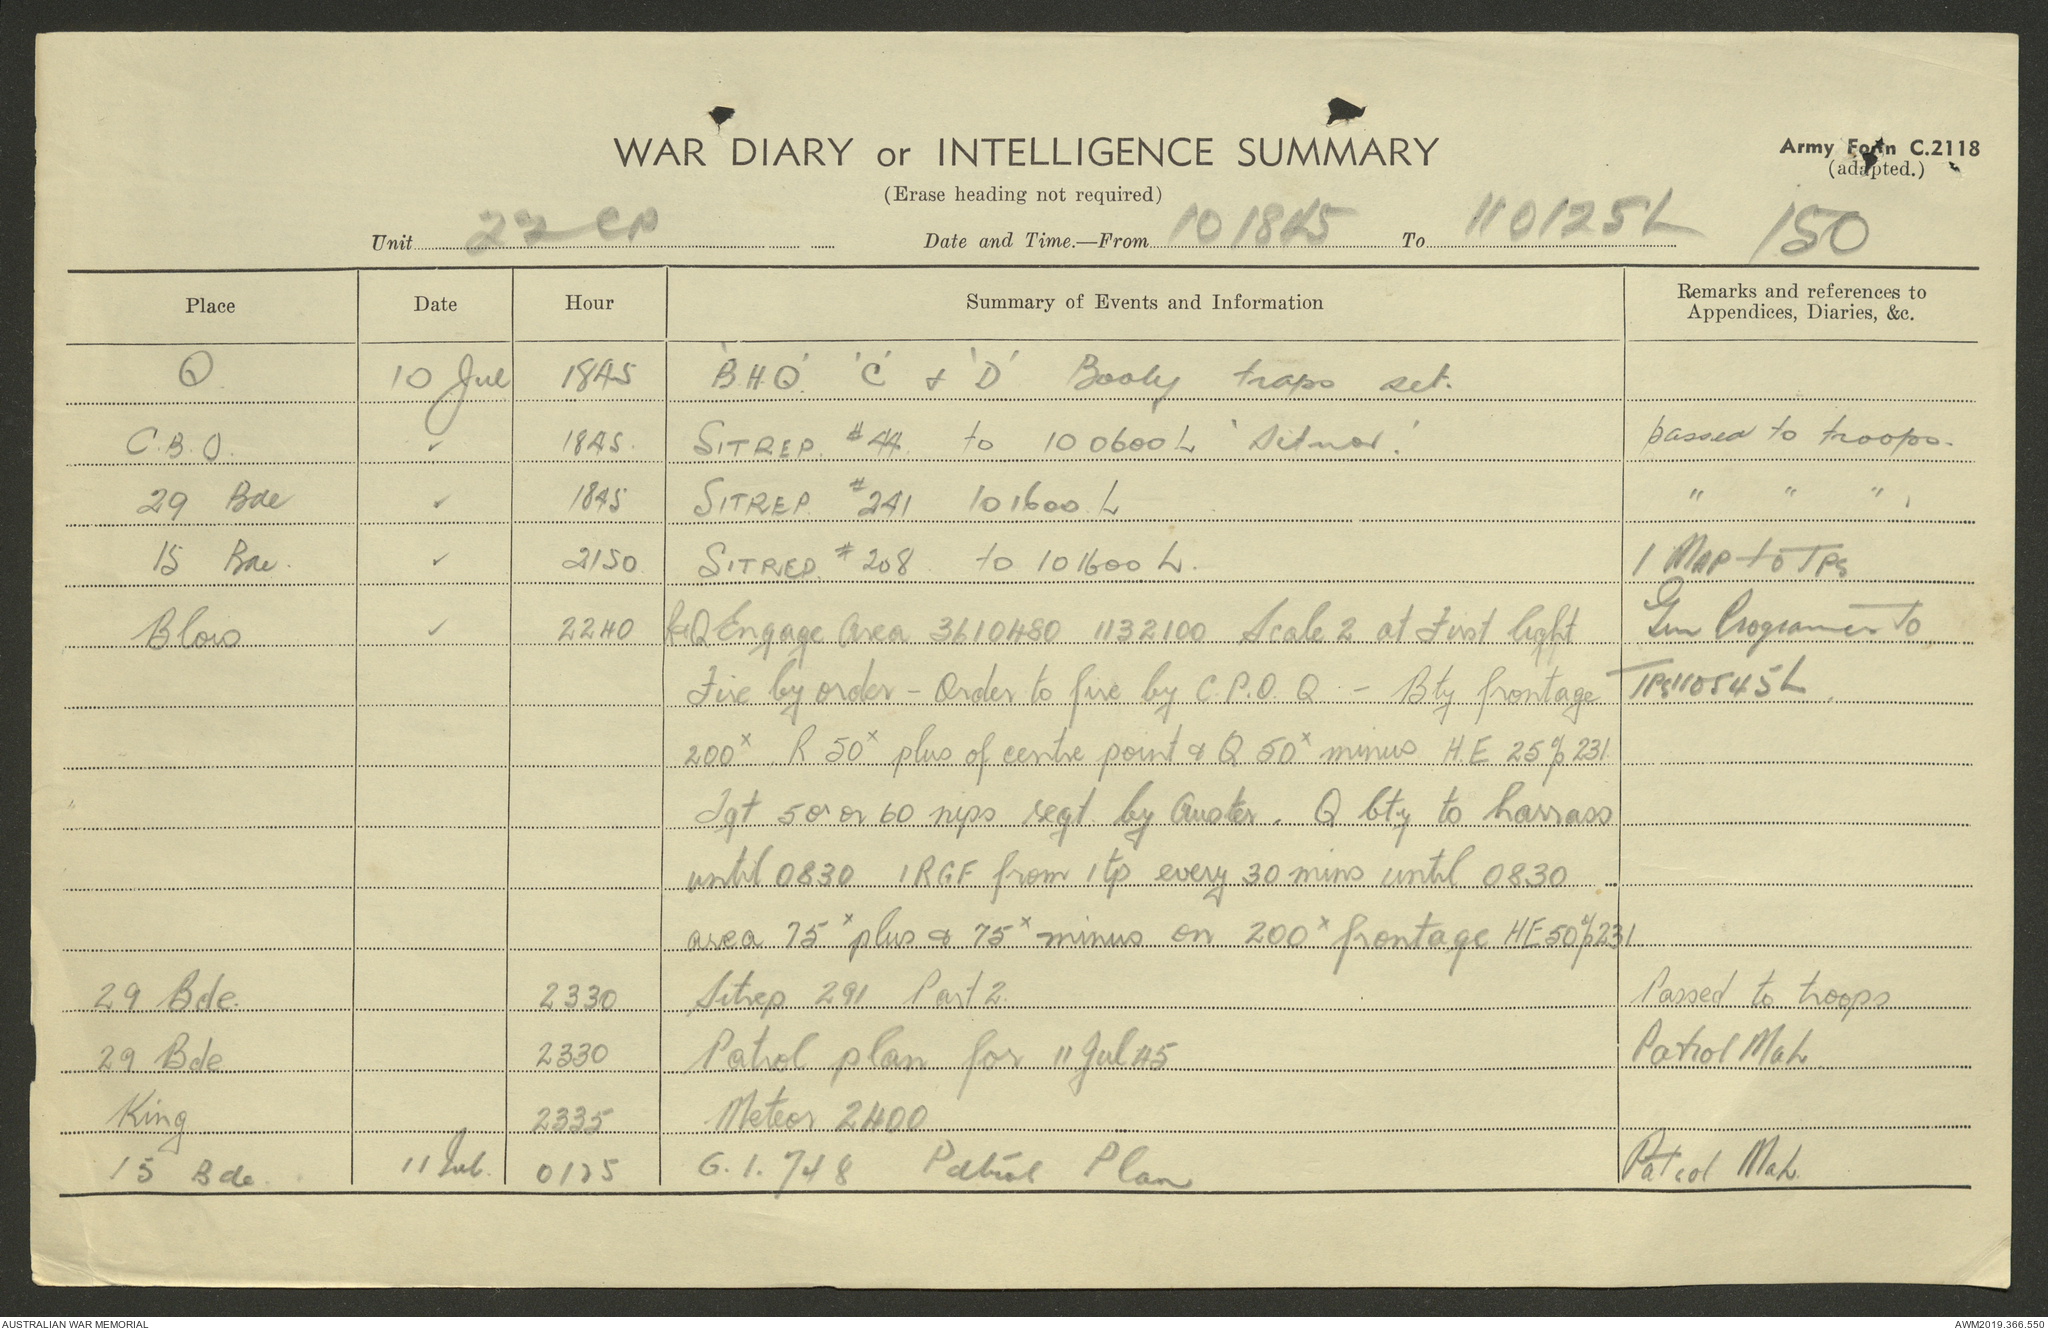 WAR DIARY or INTELLIGENCE SUMMARY
Army Form C.2118
(adapted.)
(Erase heading not required)
Unit 22 CP Date and Time.—From 101845 To 110125L 150
Place Date Hour Summary of Events and Information Remarks and references to Appendices, Diaries, &c.
Q 10 Jul 1845 'B.H.Q' 'C' & 'D' Booby traps set.
C.B.O. ✓ 1845. SITREP. #44 to 100600L 'Sitnor'. passed to troops.
29 Bde ✓ 1845 SITREP. #241 101600L " " "
15 Bde. ✓ 2150 SITREP. #208 to 101600L. 1 MAP to TPs
Blois ✓ 2240 R&Q Engage Area 3610480 1132100 Scale 2 at First light Gun Programmes to
Fire by order – Order to fire by C.P.O. Q – Bty frontage TPs 110545L.
200x. R 50x plus of centre point & Q 50x minus H.E 25% 231.
Tgt 50 or 60 nips regt. by Auster. Q bty to harrass
until 0830 1RGF from 1 tp every 30 mins until 0830
area 75x plus & 75x minus on 200x frontage HE 50% 231
29 Bde. 2330 Sitrep 291 Part 2. Passed to troops
29 Bde 2330 Patrol plan for 11 Jul 45 Patrol Map
King 2335 Meteor 2400
15 Bde. 11 Jul. 0125 G.1.748 Patrol Plan Patrol Map.
AUSTRALIAN WAR MEMORIAL
AWM2019.366.550